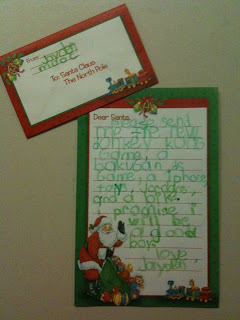 From: Jayden
To: Santa Claus
The North Pole
Dear Santa,
Please send
me the new
donkey kong
game, a
bakugan ds
game, a iphone,
toys, Jordans,
and a bike.
I promise I
will be
a good
boy.
love,
Jayden